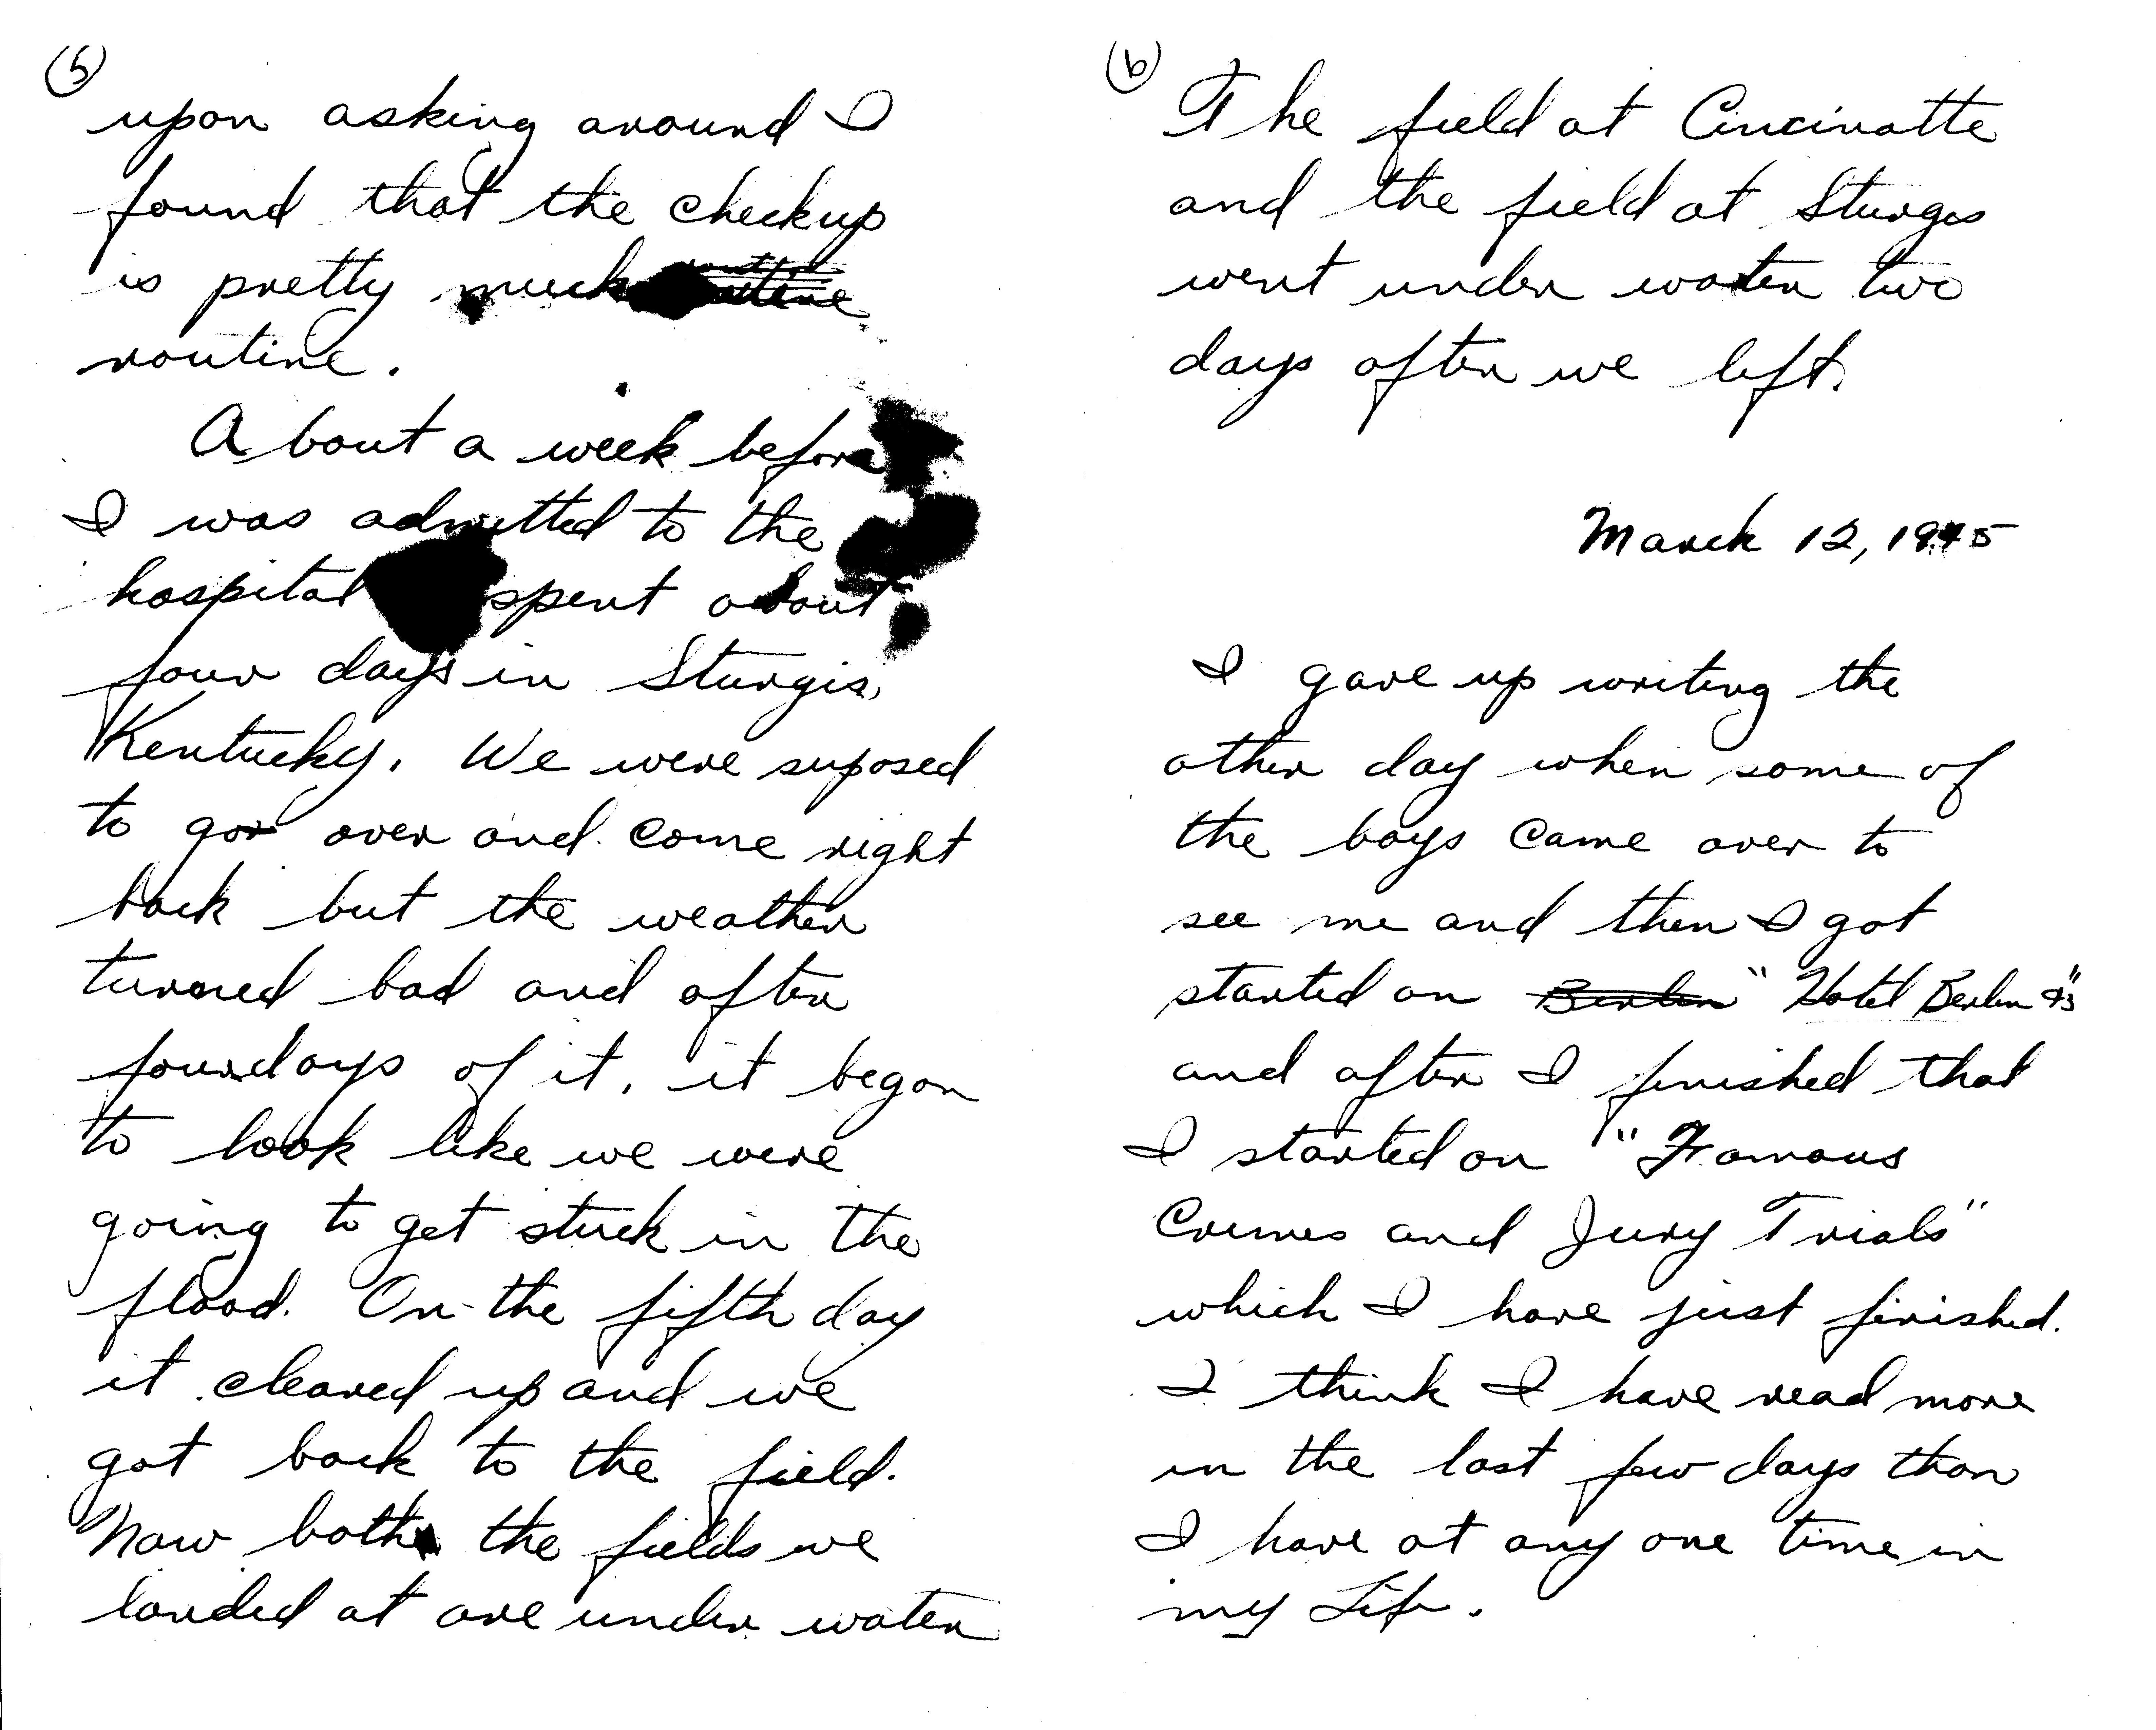 (5)
upon asking around I
found that the checkup
is pretty much routine
routine.
About a week before
I was admitted to the
hospital spent about
four days in Sturgis,
Kentucky. We were suposed
to go over and come right
back but the weather
turned bad and after
four days of it, it began
to look like we were
going to get stuck in the
flood. On the fifth day
it cleared up and we
got back to the field.
Now both the fields we
landed at are under water
(6)
The field at Cincinatte
and the field at Sturgis
went under water two
days after we left.
March 12, 1945
I gave up writing the
other day when some of
the boys came over to
see me and then I got
started on Berlin "Hotel Berlin 43"
and after I finished that
I started on "Famous
Crimes and Jury Trials"
which I have just finished.
I think I have read more
in the last few days than
I have at any one time in
my Life.